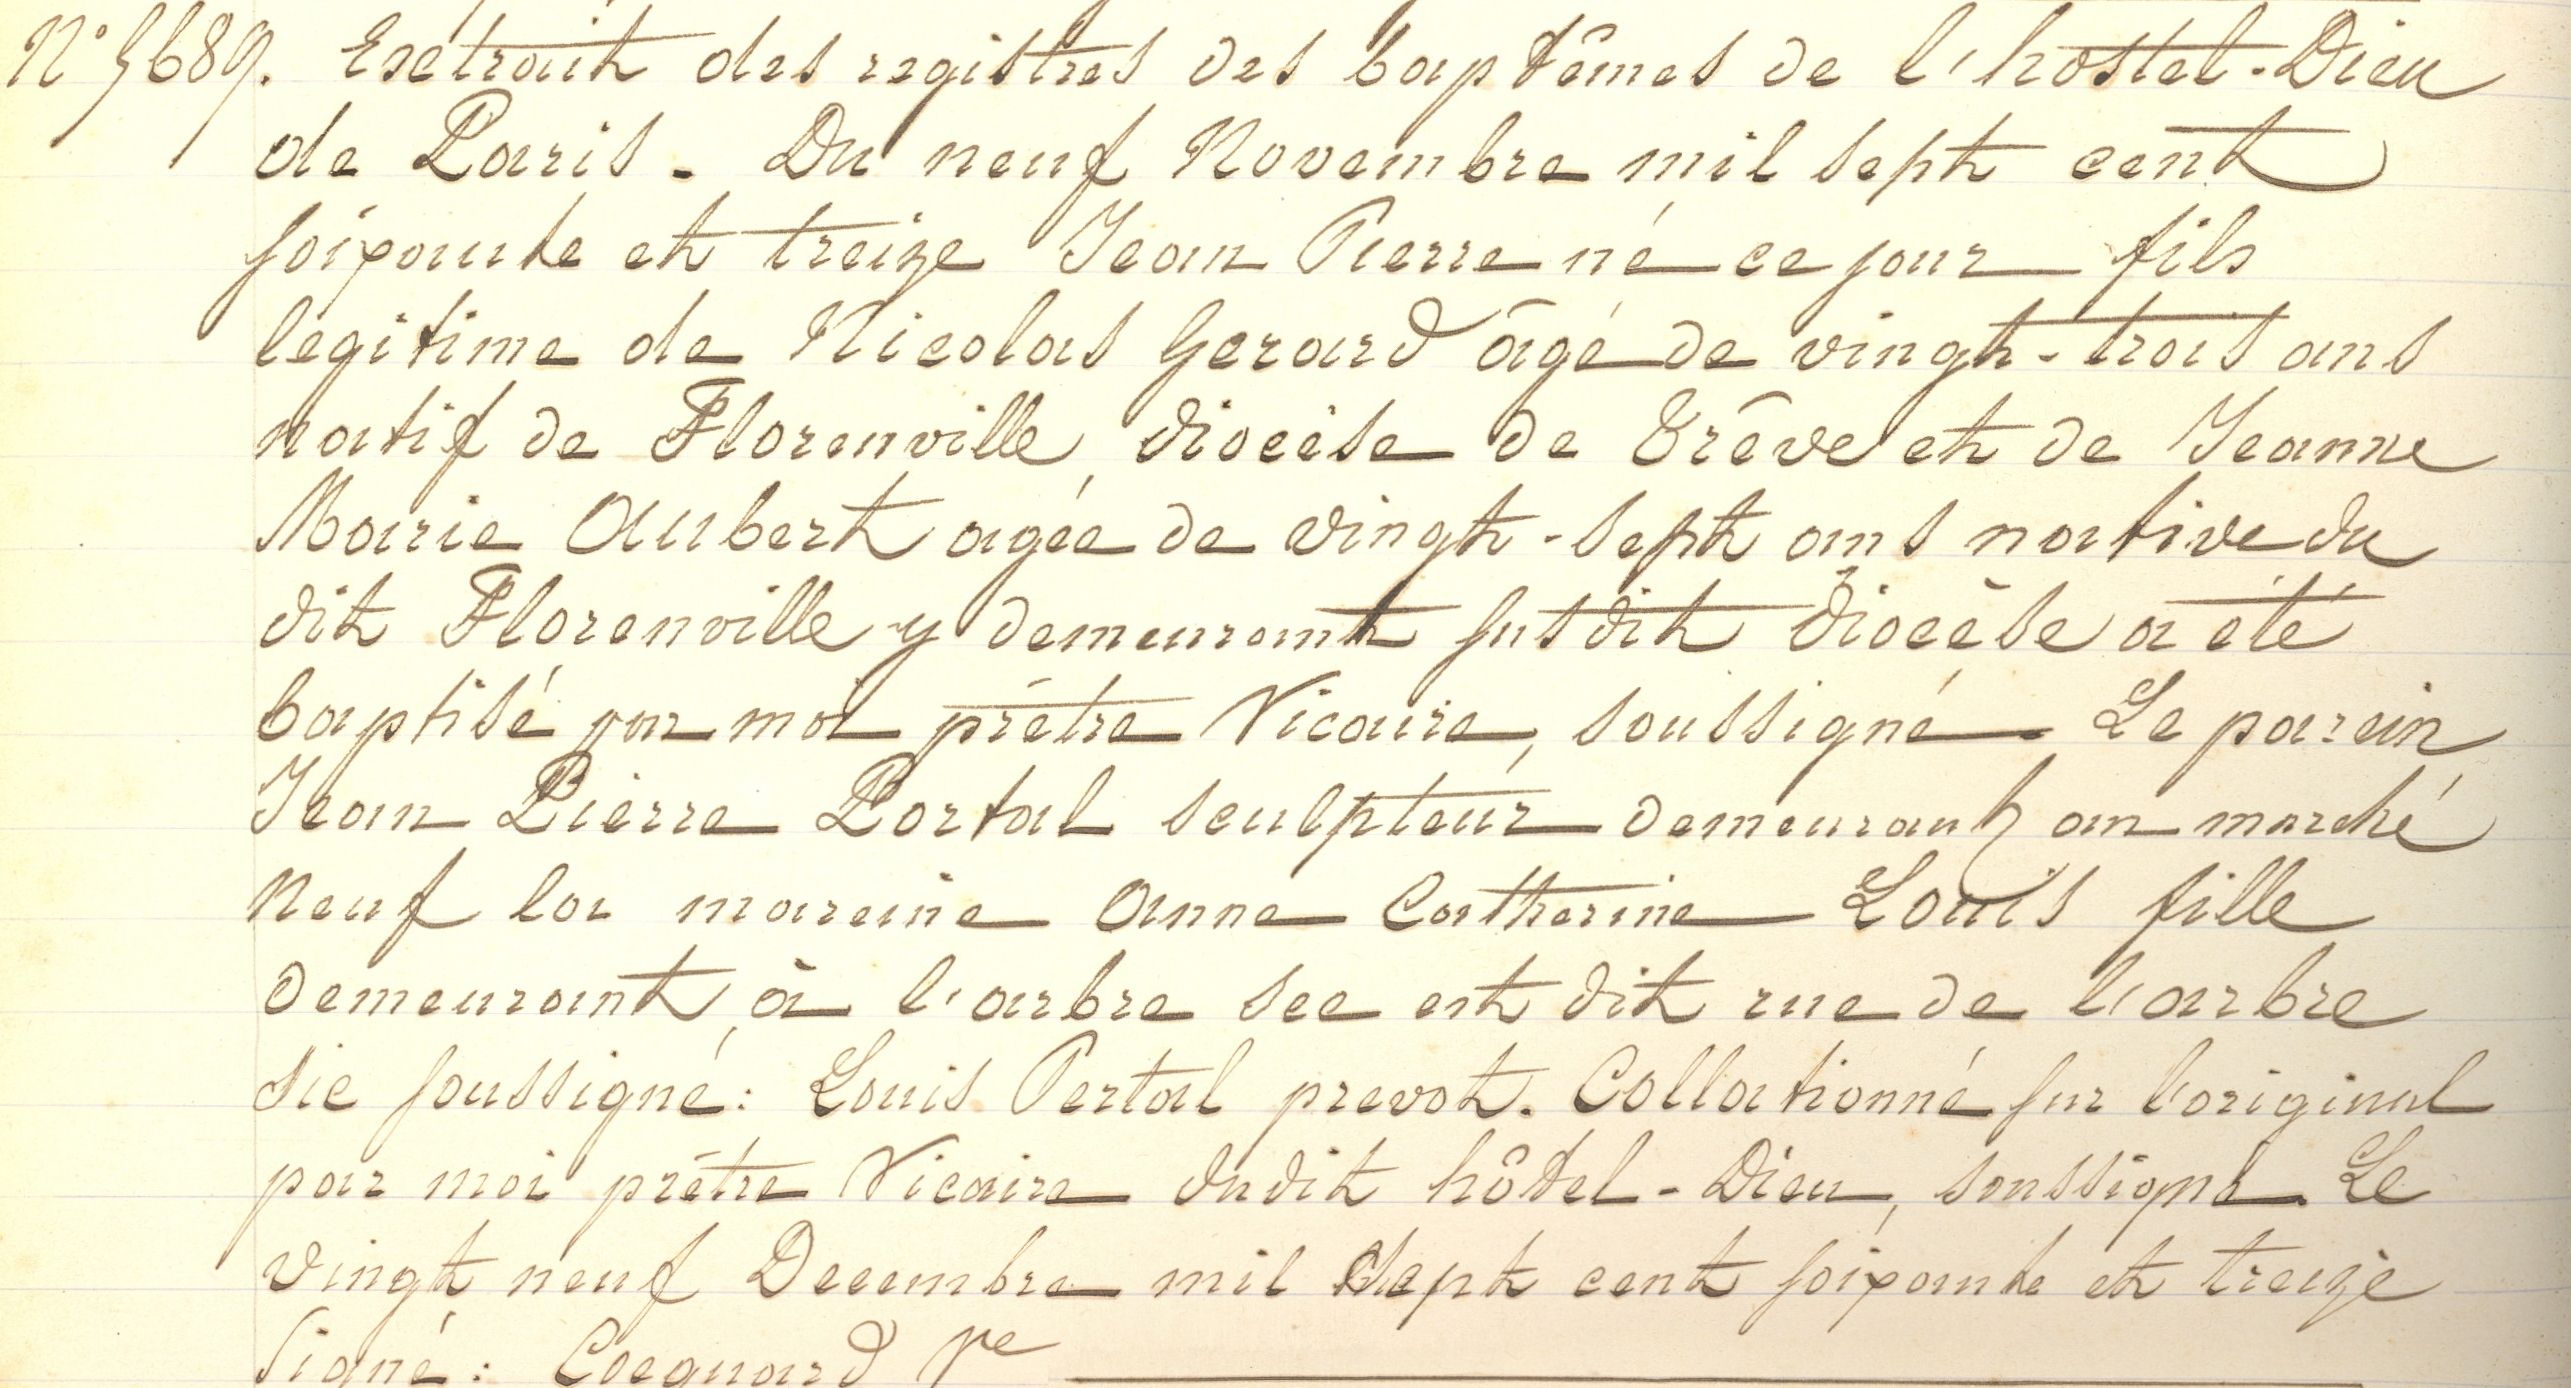 N° 5689. Extrait des registres des baptêmes de l'hostel-Dieu
de Paris. Du neuf Novembre mil sept cent
soixante et treize Jean Pierre né ce jour fils
légitime de Nicolas Gerard âgé de vingt-trois ans
natif de Florenville, diocèse de Trêve et de Jeanne
Marie Aubert agée de vingt-sept ans native du
dit Florenville y demeurant susdit diocèse a été
baptisé par moi prêtre Vicaire, soussigné. Le parein
Jean Pierre Portal sculpteur demeurant au marché
neuf la mareine Anne Catherine Louis fille
demeurant, à l'arbre sec est dit rue de l'arbre
sic soussigné: Louis Pertal prevot. Collationné sur l'original
par moi prêtre Vicaire dudit hôtel-Dieu, soussigné. Le
vingt neuf Decembre mil sept cent soixante et treize
Signé: Cocquard Pe